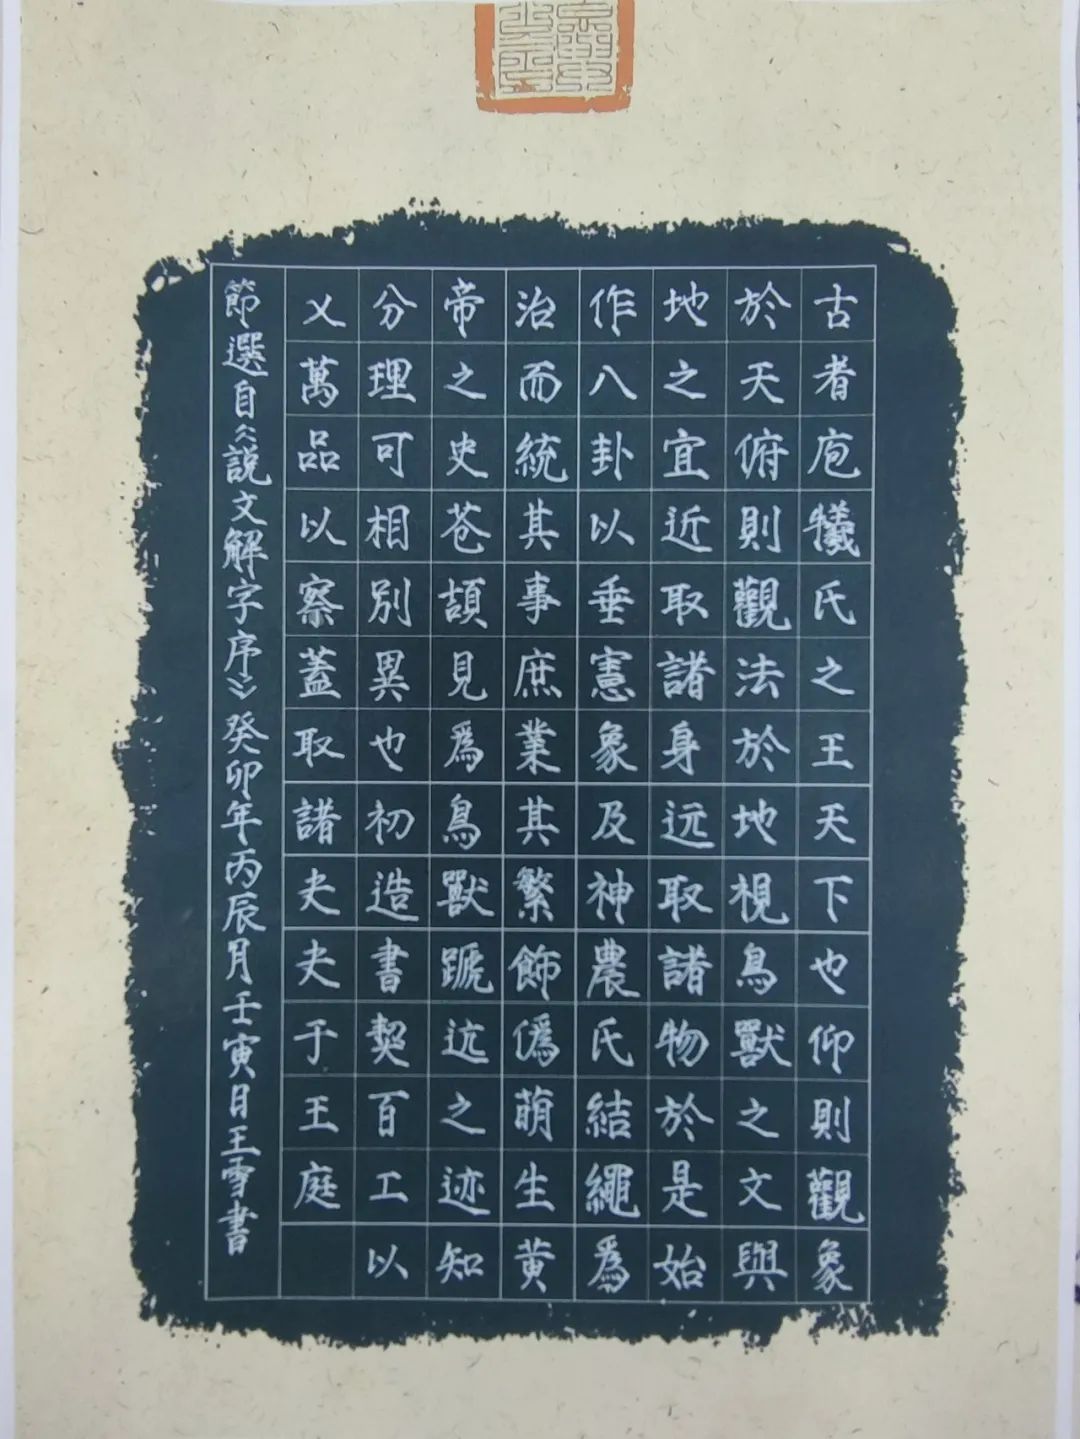 古者庖犧氏之王天下也仰則觀象
於天俯則觀法於地視鳥獸之文與
地之宜近取諸身远取諸物於是始
作八卦以垂憲象及神農氏結繩爲
治而統其事庶業其繁飾僞萌生黄
帝之史苍頡見爲鳥獸蹏迒之迹知
分理可相別異也初造書契百工以
乂萬品以察蓋取諸夬夬于王庭
節選自《說文解字序》癸卯年丙辰月壬寅日王雪書